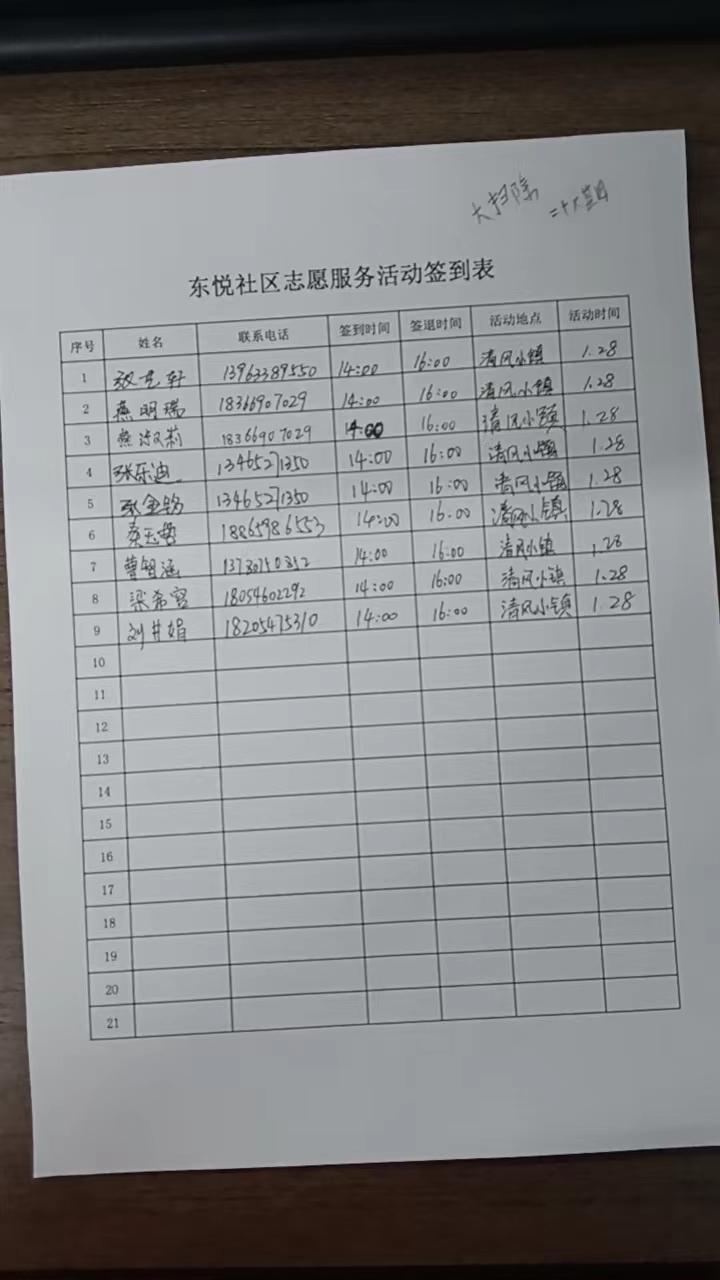 大扫除
东悦社区志愿服务活动签到表
序号 姓名 联系电话 签到时间 签退时间 活动地点 活动时间
1 13963389550 14:00 16:00 清风小镇 1.28
2 燕明瑞 18366907029 14:00 16:00 清风小镇 1.28
3 18366907029 14:00 16:00 清风小镇 1.28
4 张乐迪 13465271350 14:00 16:00 清风小镇 1.28
5 13465271350 14:00 16:00 清风小镇 1.28
6 18865986553 14:00 16:00 清风小镇 1.28
7 曹智涵 14:00 16:00 清风小镇 1.28
8 梁希容 18054602292 14:00 16:00 清风小镇 1.28
9 刘井娟 18205475310 14:00 16:00 清风小镇 1.28
10
11
12
13
14
15
16
17
18
19
20
21